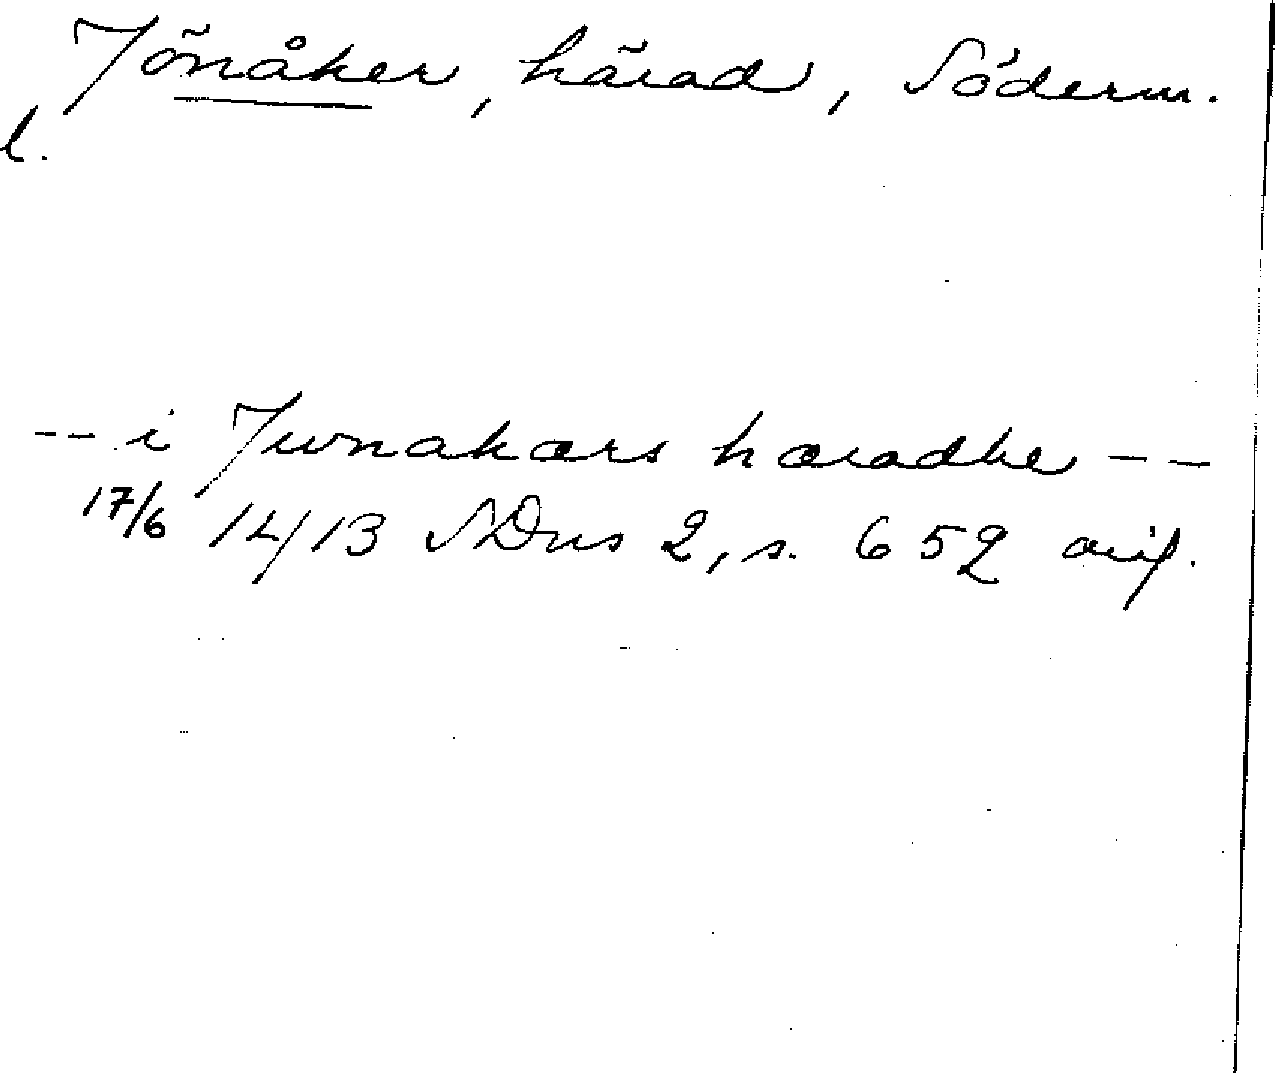 Jönåker, härad, Söderm.
l.
-- i Jwnakærs hæradhe --
17/6 1413 SDns 2, s. 652 orig.